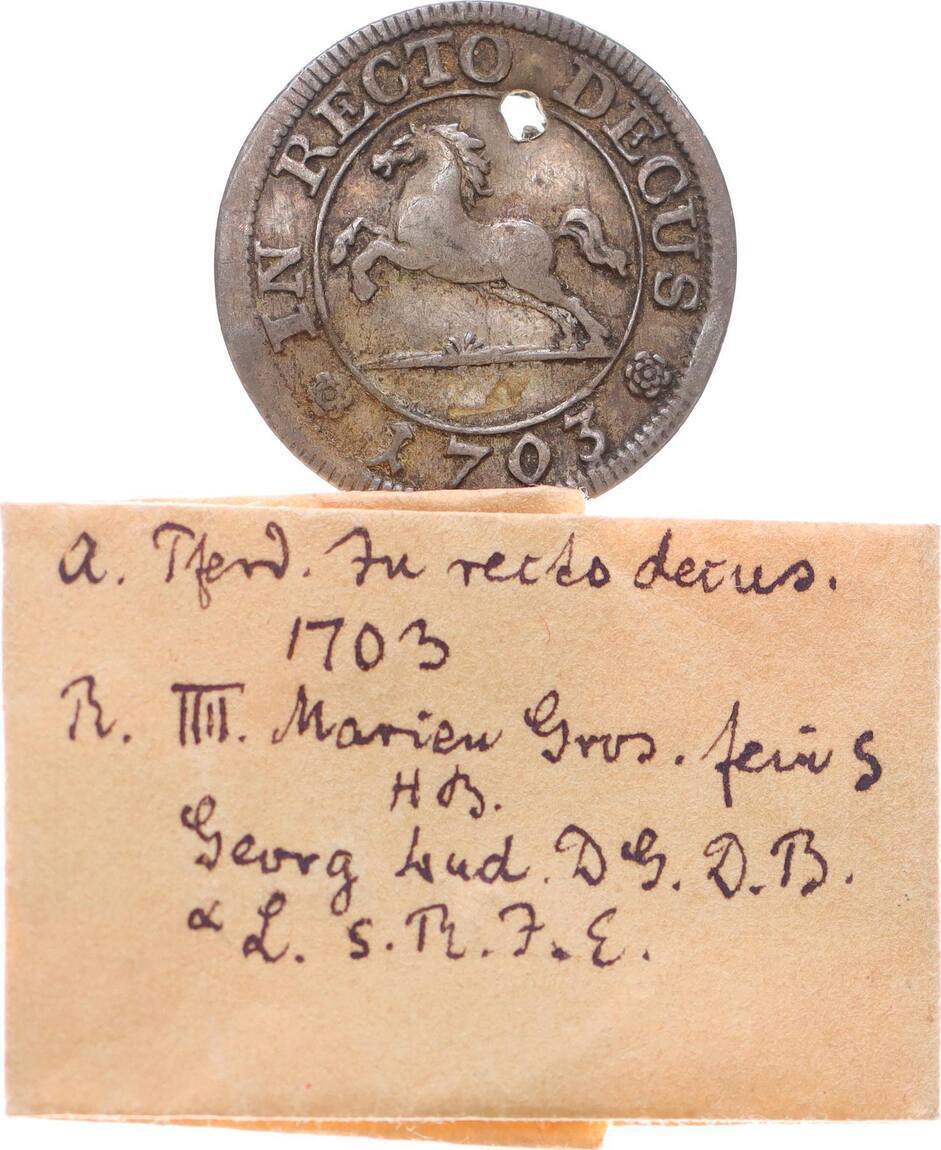 IN RECTO DECUS
1703
A. Pferd. In recto decus.
1703
R. IIII. Marien Gros. fein S
HB.
Georg Lud. D G. D. B.
& L. S. R. I. E.